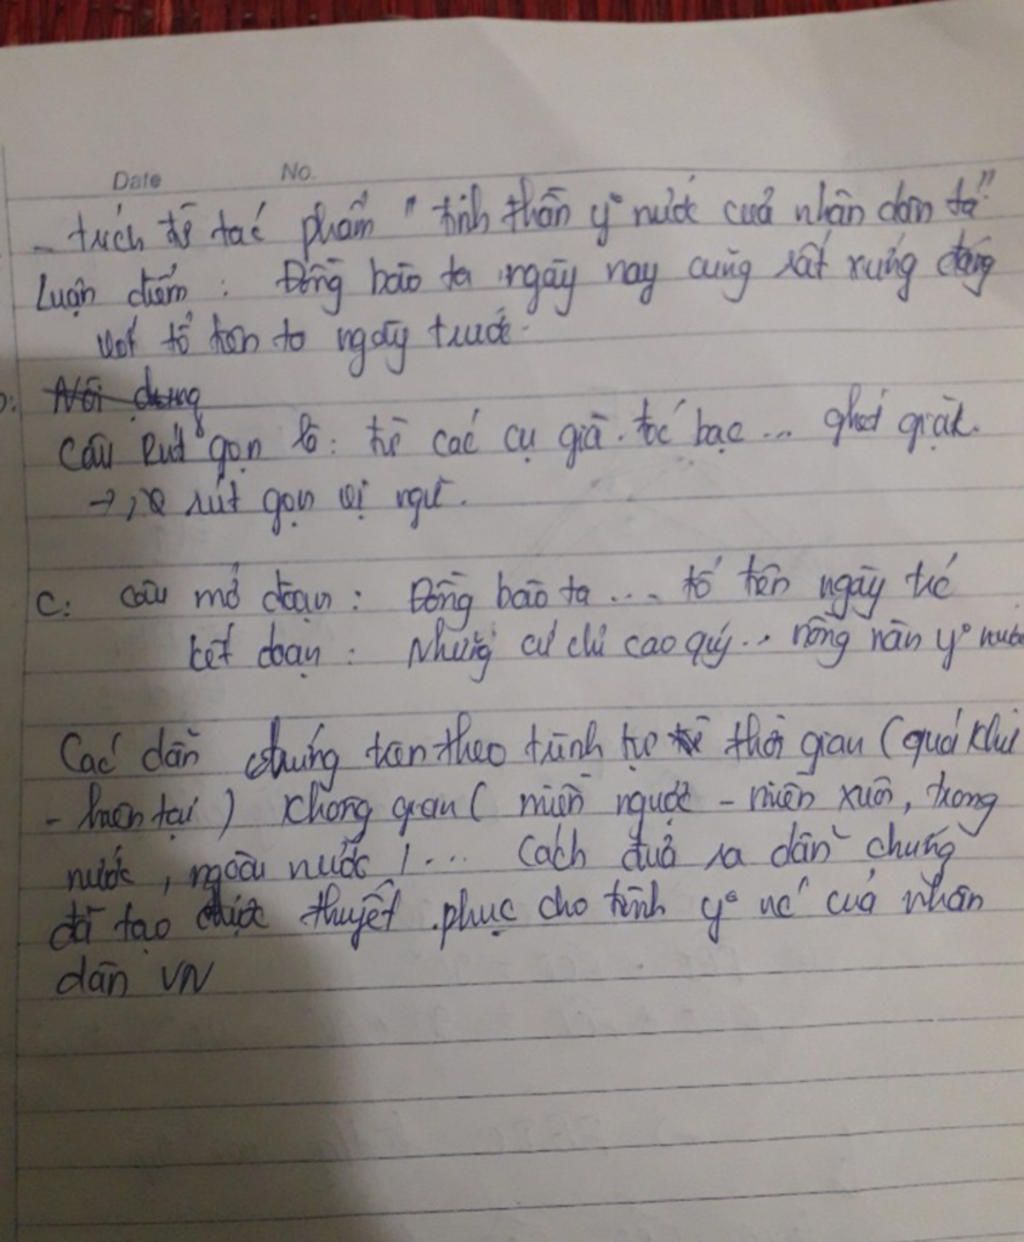 Date No.
- trích từ tác phẩm " tinh thần y° nước của nhân dân ta"
Luận điểm : Đồng bào ta ngày nay cũng rất xứng đáng
với tổ tiên ta ngày trước.
Nội dung
Câu rút gọn là: từ các cụ già tóc bạc ... ghét giặc.
→ rút gọn vị ngữ.
C: câu mở đoạn : Đồng bào ta .... tổ tiên ngày trc
kết đoạn : Những cử chỉ cao quý... nồng nàn y° nước
Các dẫn chứng theo trình tự thời gian (quá khứ
- hiện tại ) không gian ( miền ngược - miền xuôi, trong
nước , ngoài nước ) .... Cách đưa ra dẫn chứng
đã tạo được thuyết phục cho tinh y° nc của nhân
dân VN